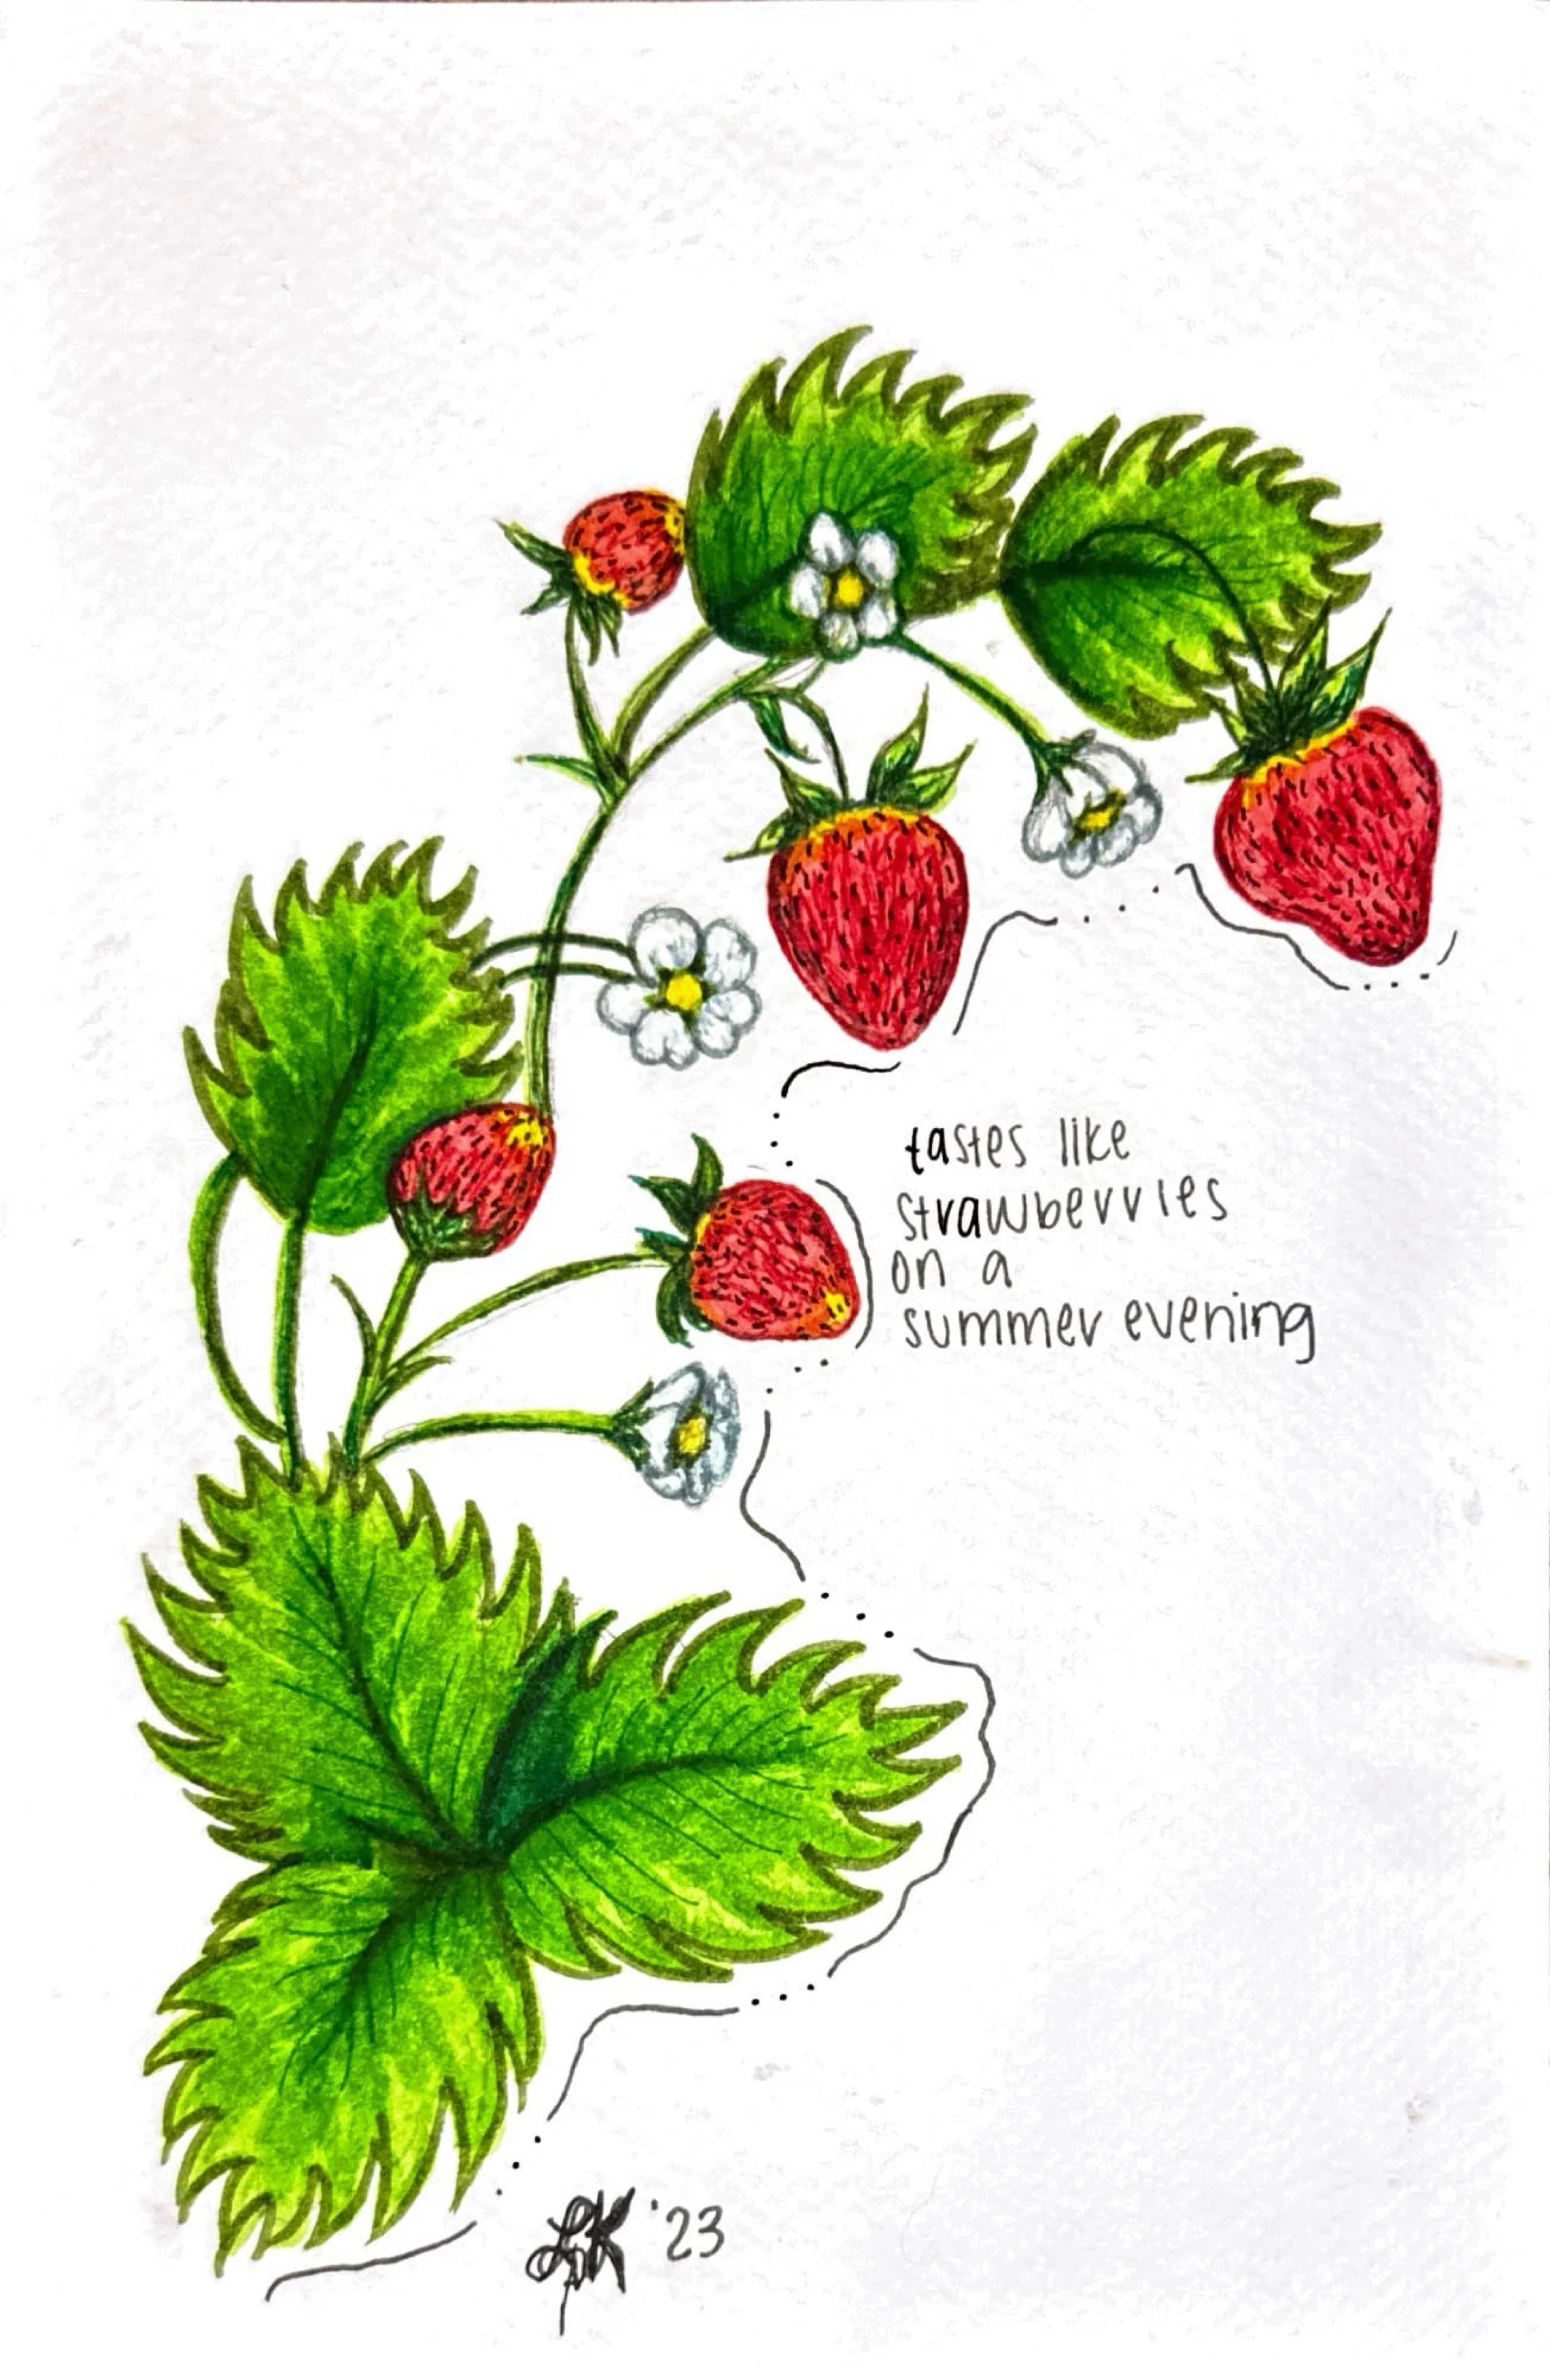 tastes like
strawberries
on a
summer evening
LK '23